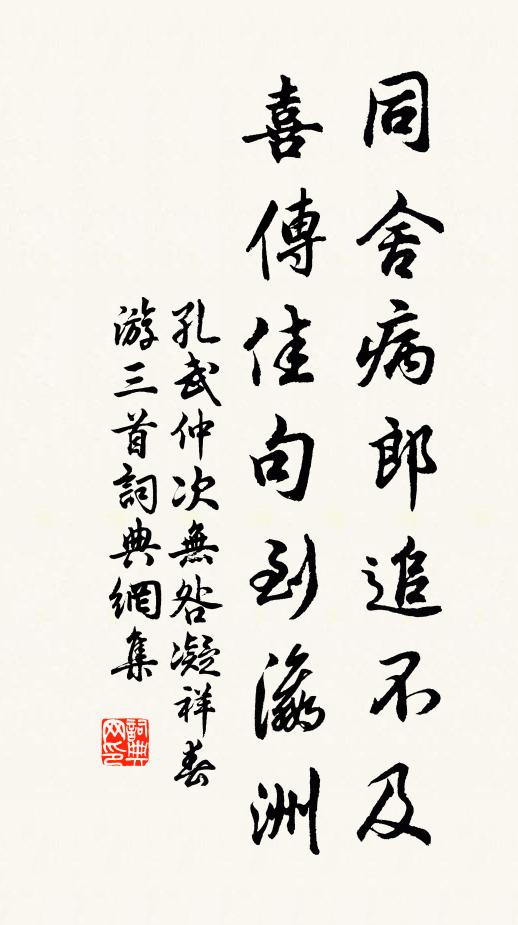 同舍病郎追不及
喜傳佳句到瀛洲
孔武仲次無咎凝祥春
游三首詞典網集
詞典網印